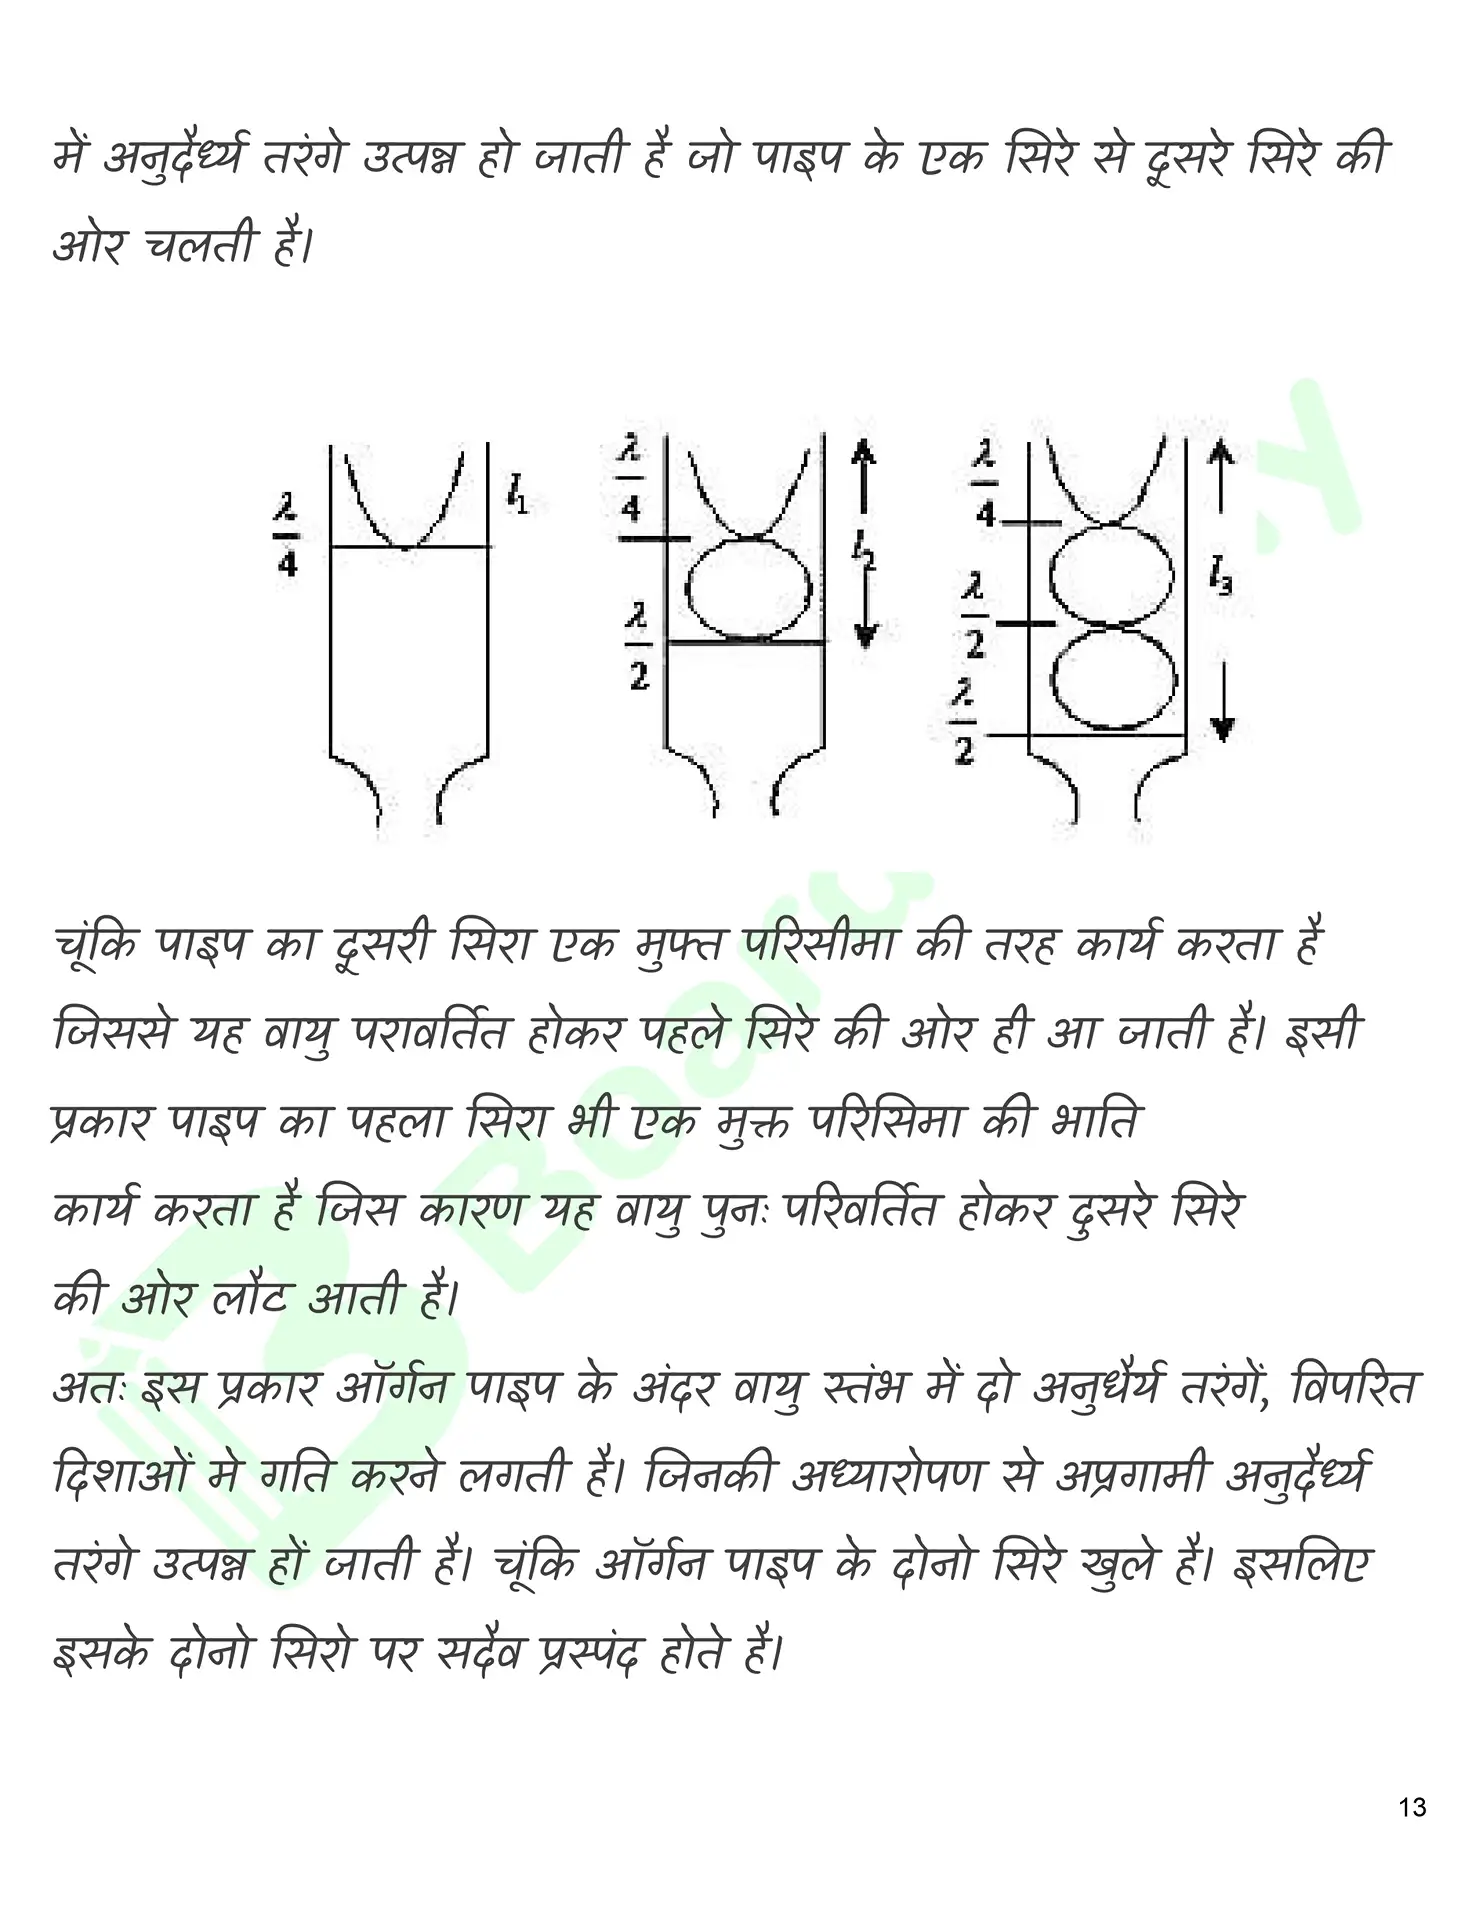 में अनुदैर्ध्य तरंगे उत्पन्न हो जाती है जो पाइप के एक सिरे से दूसरे सिरे की
ओर चलती है।
λ/4
l1
λ/4
λ/2
l2
λ/4
λ/2
λ/2
l3
चूंकि पाइप का दूसरी सिरा एक मुफ्त परिसीमा की तरह कार्य करता है
जिससे यह वायु परावर्तित होकर पहले सिरे की ओर ही आ जाती है। इसी
प्रकार पाइप का पहला सिरा भी एक मुक्त परिसिमा की भाति
कार्य करता है जिस कारण यह वायु पुनः परिवर्तित होकर दुसरे सिरे
की ओर लौट आती है।
अतः इस प्रकार ऑर्गन पाइप के अंदर वायु स्तंभ में दो अनुधैर्य तरंगें, विपरित
दिशाओं मे गति करने लगती है। जिनकी अध्यारोपण से अप्रगामी अनुदैर्ध्य
तरंगे उत्पन्न हों जाती है। चूंकि ऑर्गन पाइप के दोनो सिरे खुले है। इसलिए
इसके दोनो सिरो पर सदैव प्रस्पंद होते है।
Board
13